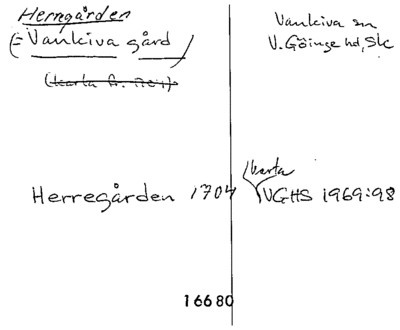 Herrgården
(= Vankiva gård)
Vankiva sn
V. Göinge hd, Sk
(karta fr. 1704)
karta
Herregården 1704 VGHS 1969:98
16680